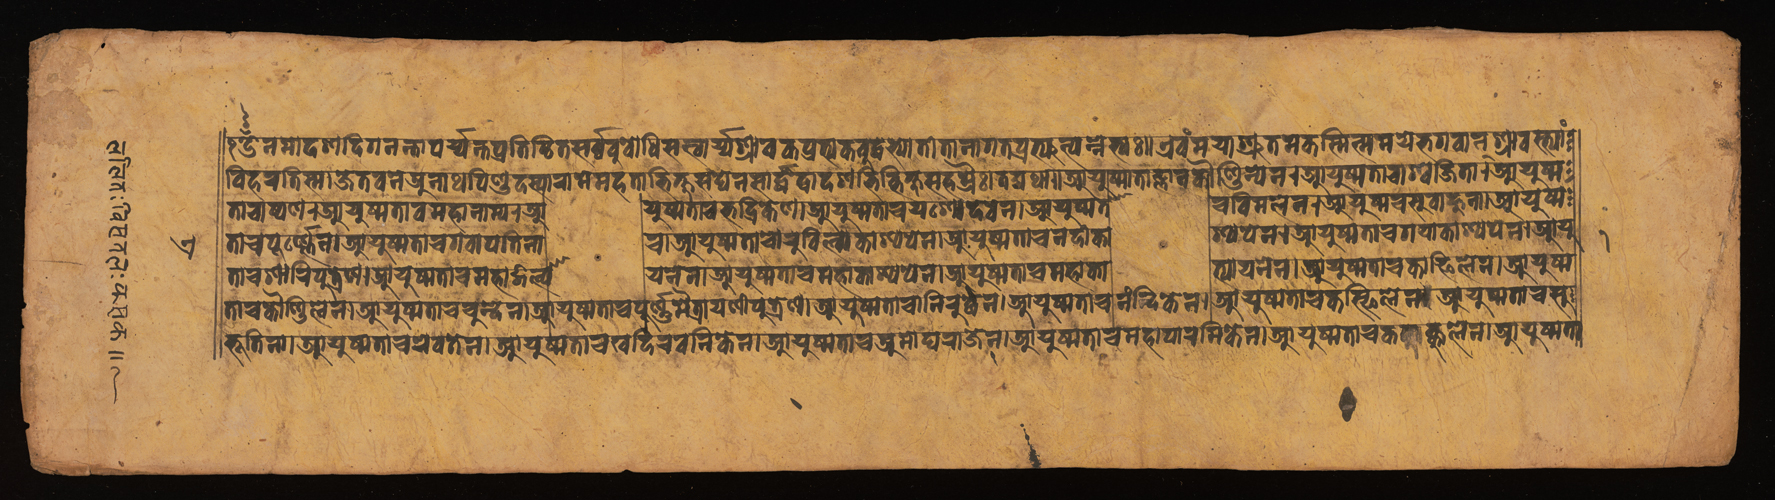 ॐनमोदशदिगनन्तापर्य्यन्तप्रतिष्ठितसर्व्वबुबोधिसत्त्वार्य्यश्रावकप्रत्यकबुद्धेभ्योतीतानागतप्रत्युत्पन्नेभ्यः॥एवंमयाश्रुतमेकस्मिन्समयेभगवान्श्रावस्त्यां
विहरतिस्म।जेतवनेअनाथपिण्डदस्यारामेमहताभिक्षुसंघेनसार्द्धंद्वादशभिर्भिक्षुसहस्रैः।तद्यथा॥आयुष्मताज्ञानकौण्डिन्येन।आयुष्मताचाश्वजिता।आयुष्म
ताचाष्पेण।आयुष्मताचमहानाम्न।आयुष्मताचभद्रिकेण।आयुष्मताचयशोदेवेन।आयुष्मतेचविमलेन।आयुष्मचसुबाहुना।आयुष्म
ताचपूर्ण्णेन।आयुष्मताचगवांपतिनाच।आयुष्मताचोरुविल्वाकाश्यपेन।आयुष्मताचनदीकाश्यपेन।आयुष्मताचगयाकाश्यपेन।आयु
ताचशारिपुत्रेण।आयुष्मताचमहामौगल्यायनेन।आयुष्मताचमहाकाश्यपेन।आयुष्मताचमहाकात्यायनेन।आयुष्मताचकफिलेन।आयुष्म
ताचकौण्डिलेन।आयुष्मताचचुन्देन।आयुष्मताचपूर्ण्णमैत्रायणीपुत्रेण।आयुष्मताचानिरुद्धेन।आयुष्मताचनंदिकेन।आयुष्मताचकस्फिलेन।आयुष्मताचसु
भूतिना।आयुष्मताचरेवतेन।आयुष्मताचखदिरवनिकेन।आयुष्मताचअमोघराजेन।आयुष्मताचमहापारमिकेन।आयुष्मताचकक्कुलेन।आयुष्मता